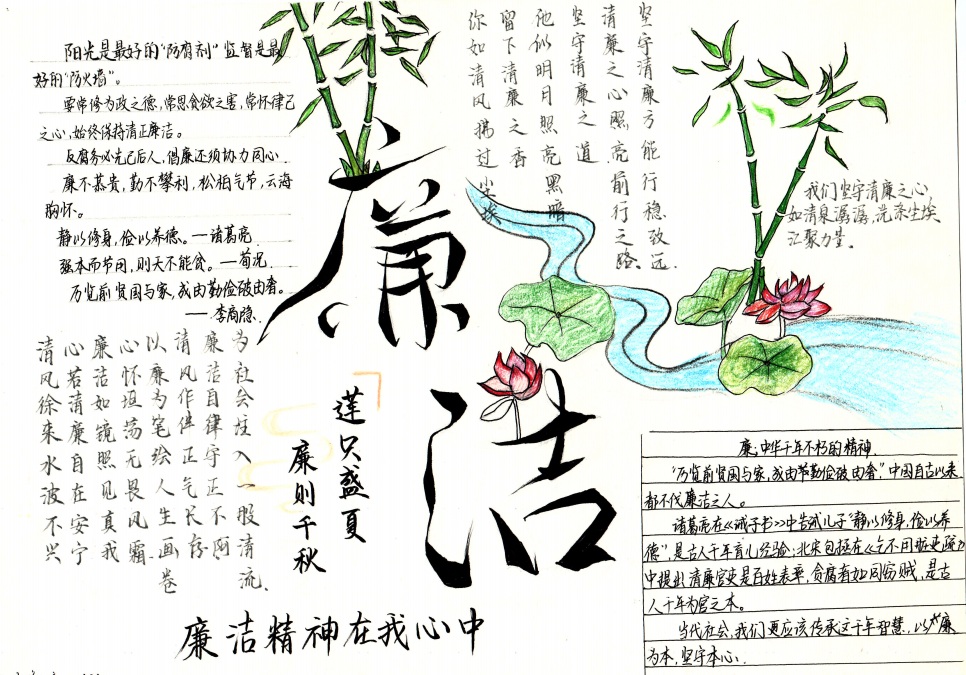 阳光是最好的"防腐剂"监督是最
好的"防火墙"。
要常修为政之德，常思贪欲之害，常怀律己
之心，始终保持清正廉洁。
反腐务必先己后人，倡廉还须协力同心
廉不慕贵，勤不攀利，松柏气节，云海
胸怀。
静以修身，俭以养德。—诸葛亮
强本而节用，则天不能贫。—荀况
历览前贤国与家，成由勤俭破由奢。
—李商隐.
坚守清廉方能行稳致远.
清廉之心照亮前行之路.
坚守清廉之道
他似明月照亮黑暗
留下清廉之香
你如清风拂过尘埃
我们坚守清廉之心
如清泉潺潺,洗涤尘埃
汇聚力量.
廉洁
为社会注入一股清流.
廉洁自律守正不阿
清风作伴正气长存.
以廉为笔绘人生画卷
心怀坦荡无畏风霜
廉洁如镜照见真我
心若清廉自在安宁
清风徐来水波不兴
莲只盛夏
廉则千秋
廉洁精神在我心中
廉,中华千年不朽的精神
"历览前贤国与家,成由节勤俭破由奢"中国自古以来
都不伐廉洁之人。
诸葛亮在《诫子书》中告诫儿子"静以修身,俭以养
德",是古人千年育儿经验;北宋包拯在《乞不用赃吏疏》
中提到清廉官吏是百姓表率,贪腐者如同窃贼,是古
人千年为官之本。
当代社会,我们更应该传承这千年智慧,以廉
为本,坚守本心.